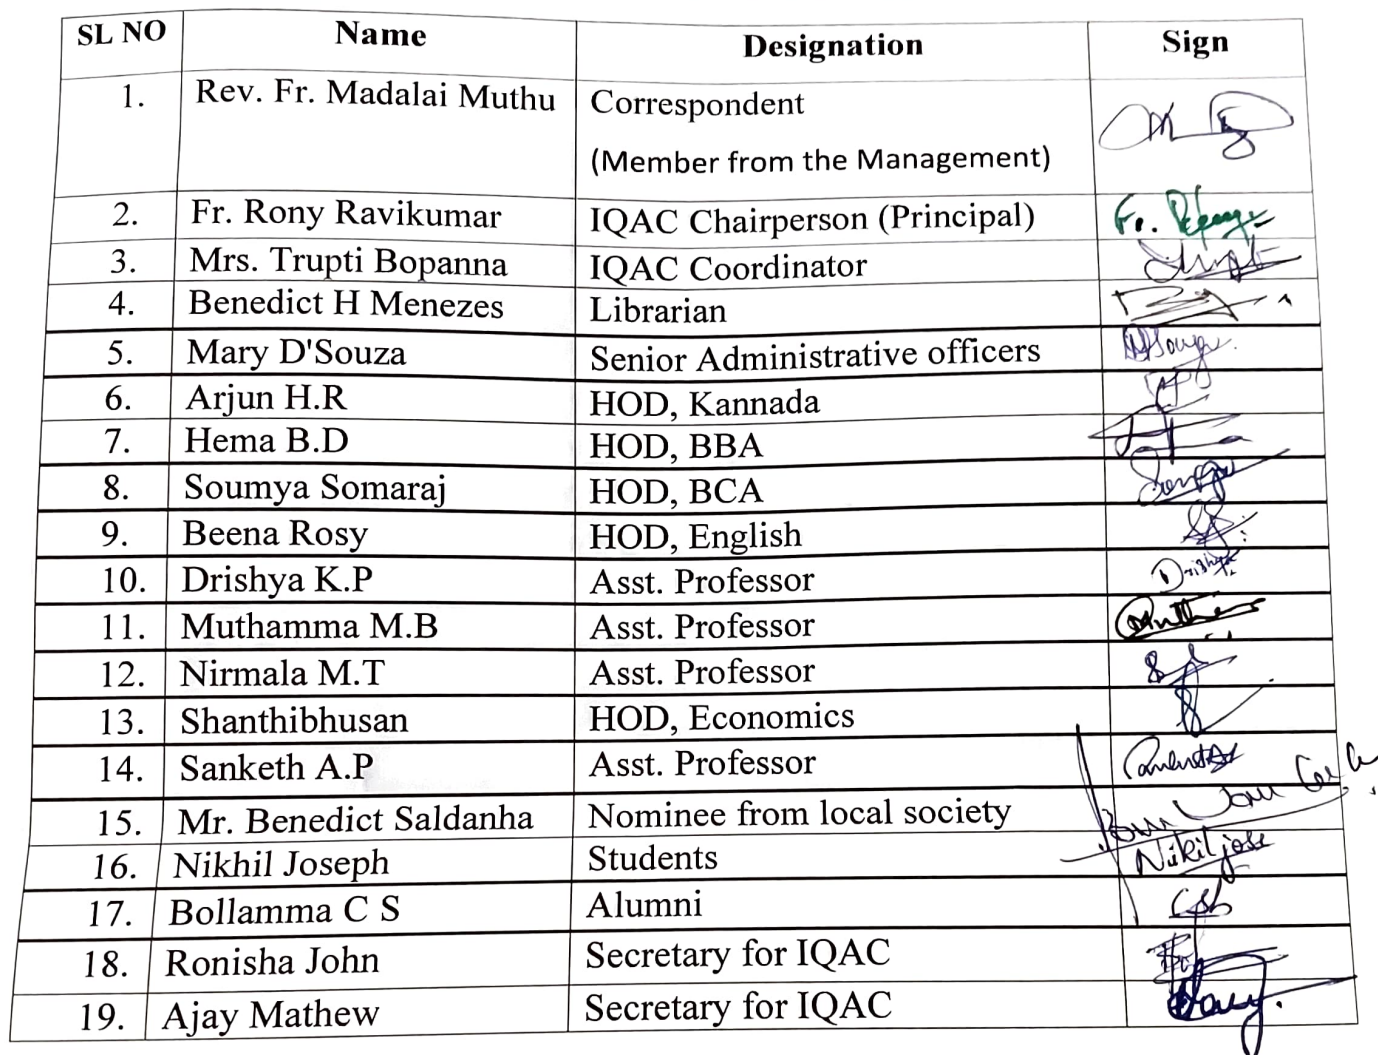 SL NO Name Designation Sign
1. Rev. Fr. Madalai Muthu Correspondent
(Member from the Management)
2. Fr. Rony Ravikumar IQAC Chairperson (Principal) Fr.
3. Mrs. Trupti Bopanna IQAC Coordinator
4. Benedict H Menezes Librarian
5. Mary D'Souza Senior Administrative officers
6. Arjun H.R HOD, Kannada
7. Hema B.D HOD, BBA
8. Soumya Somaraj HOD, BCA
9. Beena Rosy HOD, English
10. Drishya K.P Asst. Professor Drishya
11. Muthamma M.B Asst. Professor
12. Nirmala M.T Asst. Professor
13. Shanthibhusan HOD, Economics
14. Sanketh A.P Asst. Professor
15. Mr. Benedict Saldanha Nominee from local society
16. Nikhil Joseph Students Nikil jose
17. Bollamma C S Alumni
18. Ronisha John Secretary for IQAC
19. Ajay Mathew Secretary for IQAC